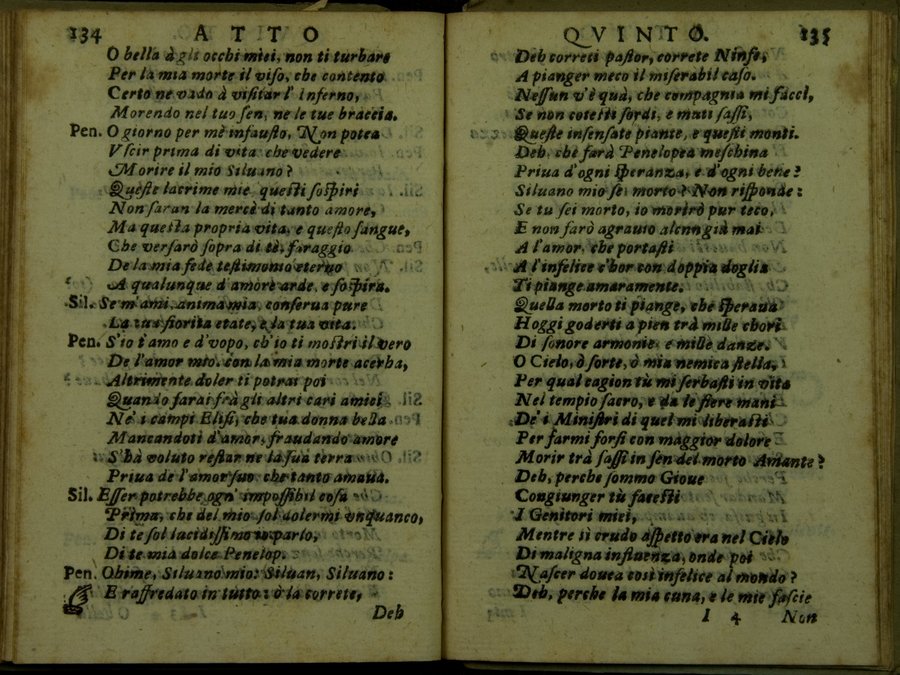 134 ATTO
O bella à gli occhi miei, non ti turbare
Per la mia morte il viso, che contento
Certo ne vado à visitar l' Inferno,
Morendo nel tuo sen, ne le tue braccia.
Pen. O giorno per mè infausto, Non potea
Vscir prima di vita che vedere
Morire il mio Siluano?
Queste lacrime mie questi sospiri
Non saran la mercè di tanto amore,
Ma questa propria vita, e questo sangue,
Che versarò sopra di tè, faraggio
De la mia fede testimonio eterno
A qualunque d'amore arde, e sospira.
Sil. Se m'ami, anima mia, conserua pure
La tua fiorita etate, e la tua vita.
Pen. S'io t'amo e d'vopo, ch'io ti mostri il vero
De l'amor mio. con la mia morte acerba,
Altrimente doler ti potrai poi
Quando sarai frà gli altri cari amici
Ne' i campi Elisi, che tua donna bella
Mancandoti d'amor, fraudando amore
S'hà voluto restar ne la sua terra
Priua de l'amor suo che tanto amaua.
Sil. Esser potrebbe ogn' impossibil cosa
Prima, che del mio sol dolermi vnquanco,
Di te sol lucidissimo io parlo,
Di te mia dolce Penelop.
Pen. Ohime, Siluano mio: Siluan, Siluano:
E raffredato in tutto: ò la correte,
Deh
QVINTO. 135
Deh correti pastor, correte Ninfe,
A pianger meco il miserabil caso.
Nessun v'è quà, che compagnia mi facci,
Se non cotesti sordi, e muti sassi,
Queste insensate piante, e questi monti.
Deh, che farà Penelopea meschina
Priua d'ogni speranza, e d'ogni bene?
Siluano mio sei morto? Non risponde:
Se tu sei morto, io morirò pur teco,
E non farò agrauio alcun già mai
A l'amor, che portasti
A l'infelice c'hor con doppia doglia
Ti piange amaramente.
Quella morto ti piange, che speraua
Hoggi goderti a pien trà mille chori
Di sonore armonie, e mille danze.
O Cielo, ò sorte, ò mia nemica stella,
Per qual cagion tù mi serbasti in vita
Nel tempio sacro, e da le fiere mani
De' i Ministri di quel mi liberasti
Per farmi forsi con maggior dolore
Morir trà sassi in sen del morto Amante?
Deh, perche sommo Gioue
Congiunger tù facesti
I Genitori miei,
Mentre sì crudo aspetto era nel Cielo
Di maligna influenza, onde poi
Nascer douea così infelice al mondo?
Deh, perche la mia cuna, e le mie fascie
I 4 Non